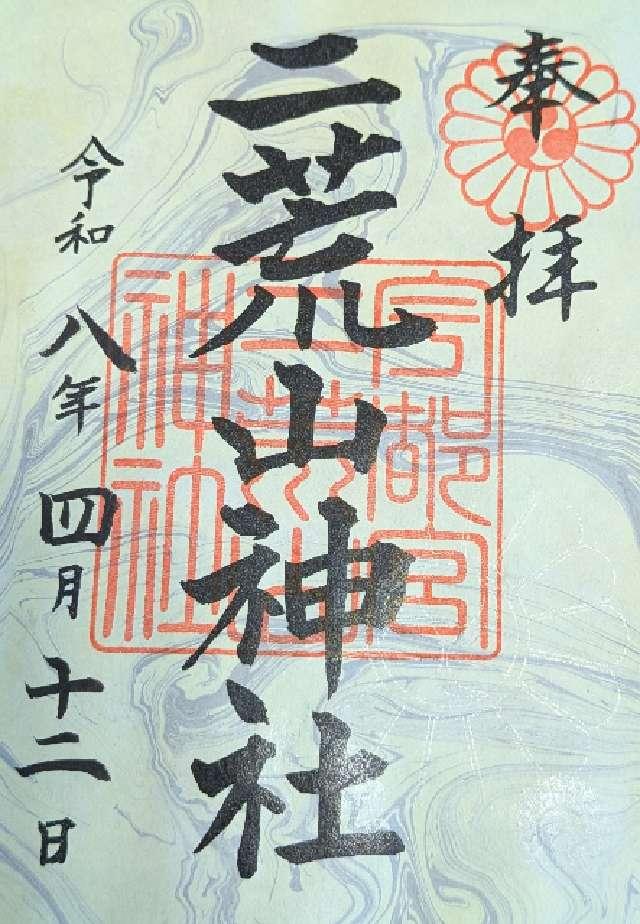 奉拝
二荒山神社
宇都宮
二荒山
神社
令和八年四月十二日